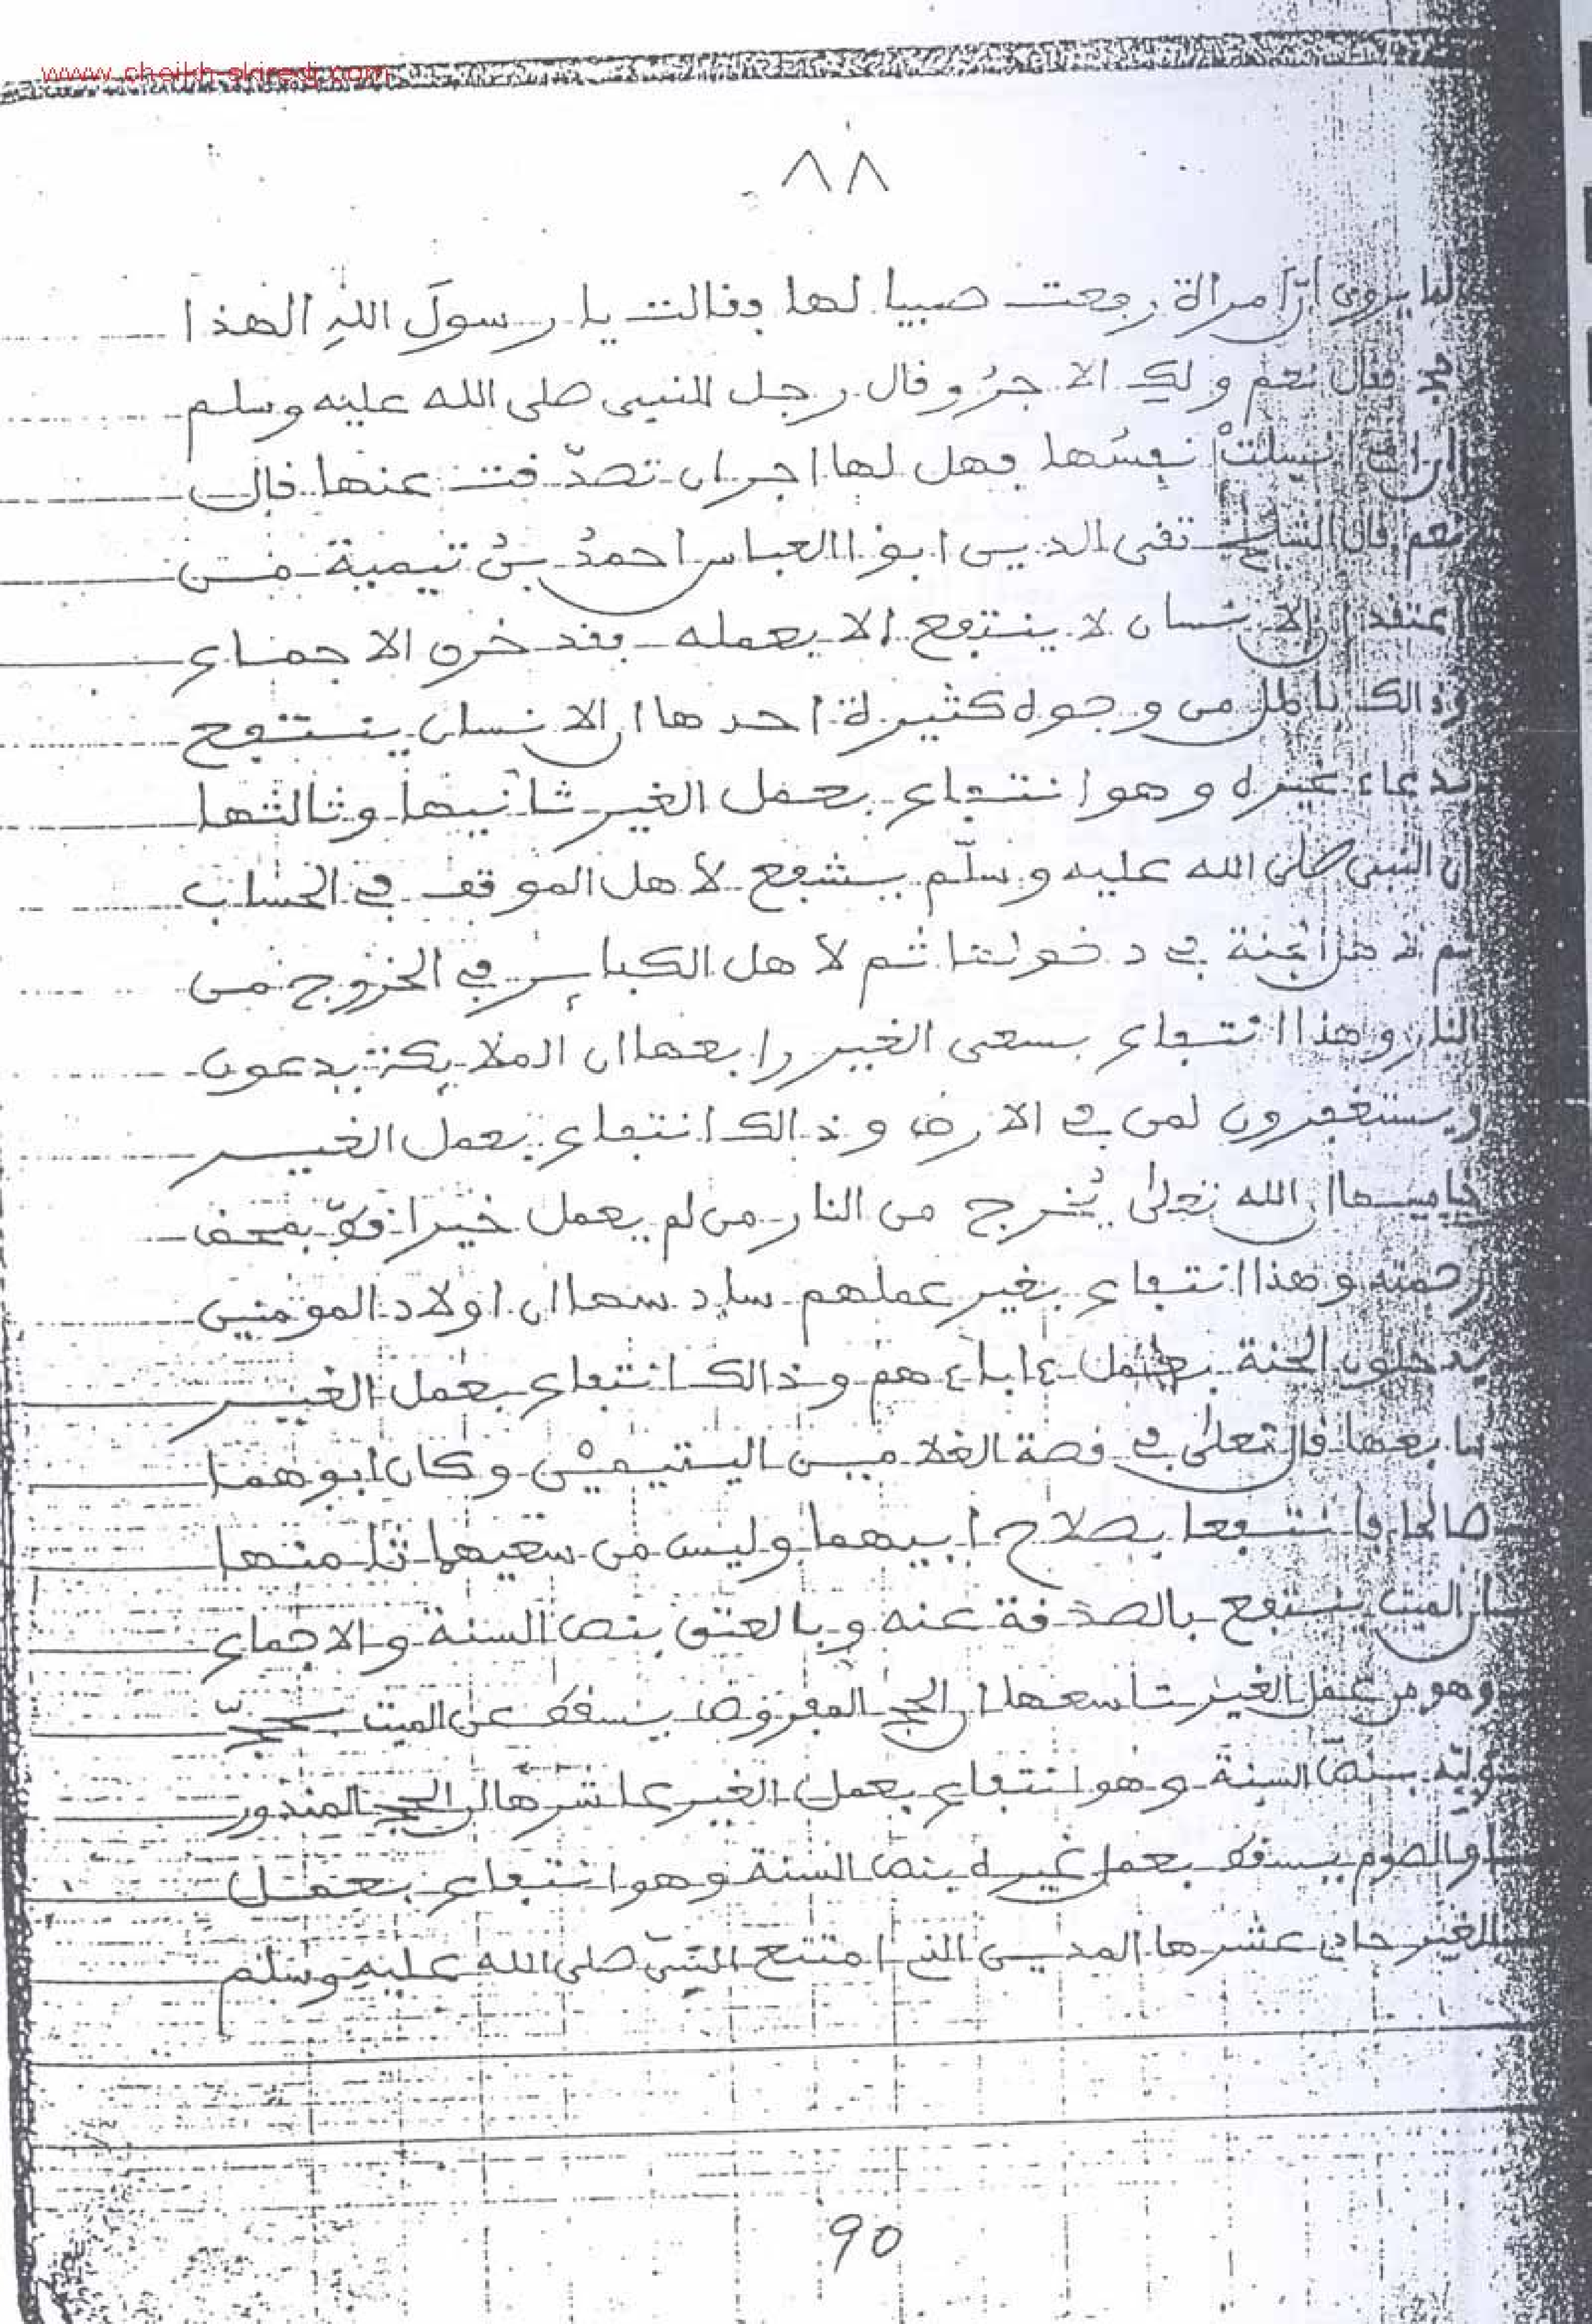 www.cheikh-skiredj.com
٨٨
لما يروى ان امراة رفعت صبيا لها وفالت يا رسولَ اللهِ الهذا
حج فقال نعم ولكِ الاجرُ وفال رجل للنبي صلى الله عليه وسلم
نفسُها فهل لها اجر ان تصدّفت عنها فال
نعم فال الشيخ تفى الدين ابو العباس احمدُ بنُ تيمية من
اعتفد ان الانسان لا ينتفع الا بعمله ففد خرق الاجماع
وذالك باطل من وجوه كثيرة احدها ان الانسان ينتفع
بدعاء غيره وهو انتفاع بعمل الغير ثانيها وثالثها
ان النبى صلى الله عليه وسلّم يشفع لأهل الموقف في الحساب
ثم لاهل الجنة في دخولها ثم لأهل الكبائر في الخروج من
النار وهذا انتفاع بسعى الغير رابعها ان الملايكة يدعون
ويستغفرون لمن في الارض وذالك انتفاع بعمل الغير
خامسها ان الله تعلى يُخرج من النار من لم يعمل خيرا فطّ بمحض
رحمته وهذا انتفاع بغير عملهم سادسها ان اولاد المومنين
يدخلون الجنة بعمل ءاباءهم وذالك انتفاع بعمل الغير
سابعها فال تعلى في فصة الغلامين اليتيمين وكان ابوهما
صالحا فانتفعا بصلاح ابيهما وليس من سعيهما ثامنها
ان الميت ينتفع بالصدفة عنه وبالعتق بنص السنة والاجماع
وهو من عمل الغير تاسعها ان الحج المفروض يسفط عن الميت بحجّ
وليّه بنصّ السنة وهو انتفاع بعمل الغير عاشرها ان الحج المنذور
او الصوم يسفط بعمل غيره بنص السنة وهو انتفاع بعمل
الغير حادى عشرها المدين الذى امتنع النبيّ صلى الله عليه وسلم
90